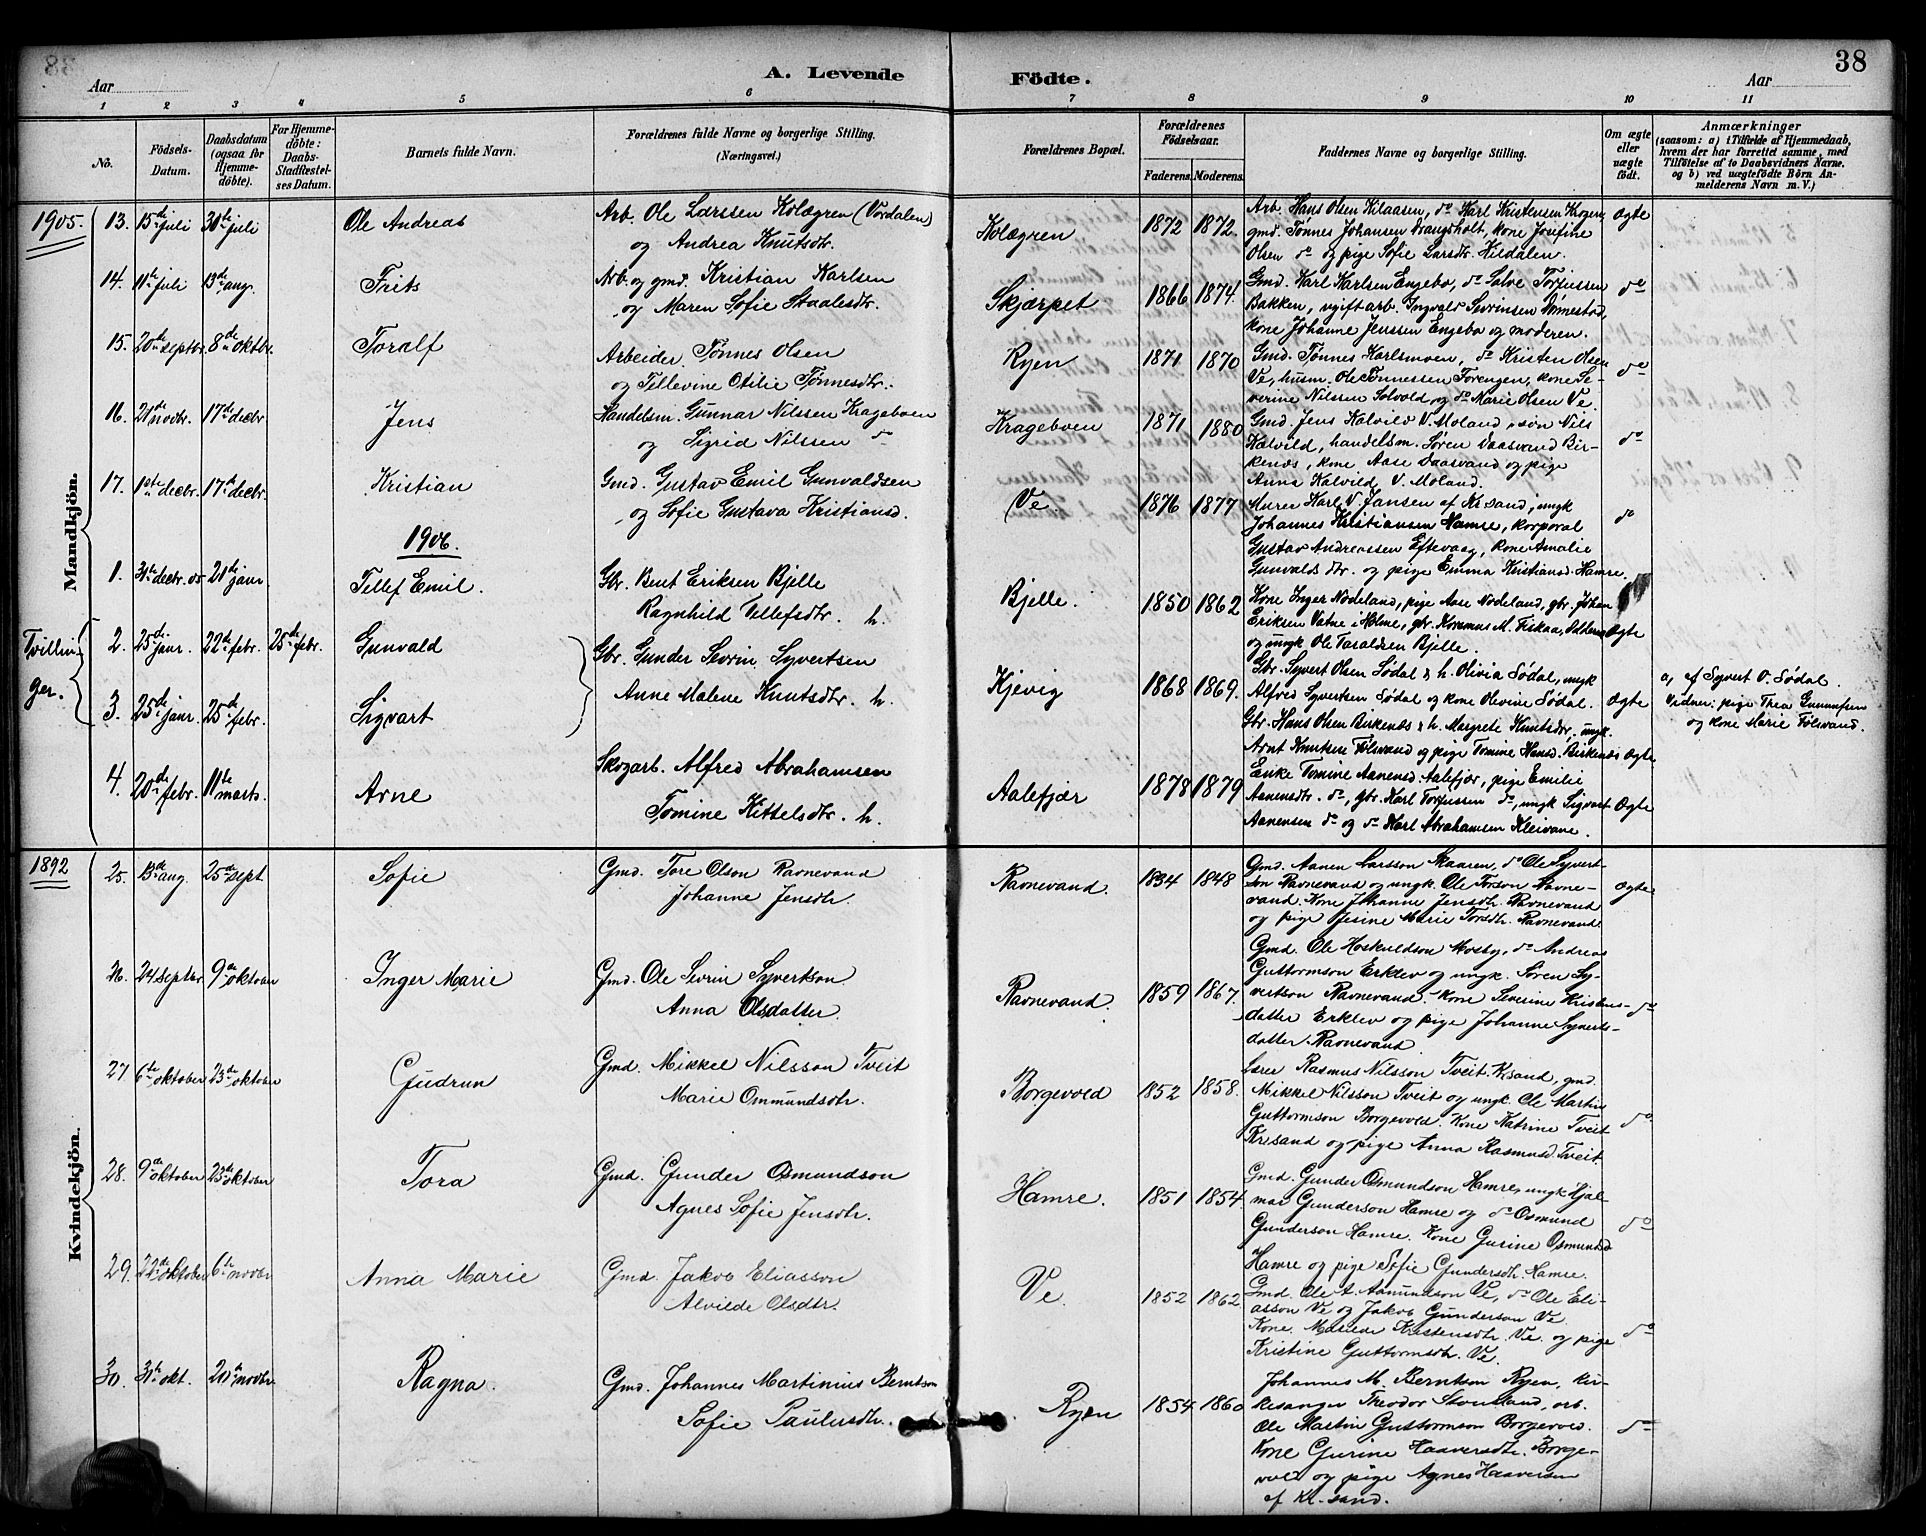 38
Aar
A. Levende Födte.
Aar
1 2 3 4 5 6 7 8 9 10 11
No.
Födsels-Datum.
Daabsdatum (ogsaa for Hjemme-döbte).
For Hjemme-döbte: Daabs-Stadfæstel-ses Datum.
Barnets fulde Navn.
Forældrenes fulde Navne og borgerlige Stilling.
(Næringsvei.)
Forældrenes Bopæl.
Forældrenes Födselsaar.
Faderens. Moderens.
Faddernes Navne og borgerlige Stilling.
Om ægte eller uægte födt.
Anmærkninger
(saasom: a) i Tilfælde af Hjemmedaab,
hvem der har forrettet samme, med
Tilföielse af to Daabsvidners Navne,
og b) ved uægtefödte Börn An-
melderens Navn m. V.)
Mandkjön.
1905.
13. 15de juli 30te juli Ole Andreas
Arb. Ole Larssen Kolægren (Vordalen)
og Andrea Knutsdtr.
Kolægren 1872 1872.
Arb. Hans Olsen Kilaasen, do Karl Kristensen Krogen,
gmd. Tønnes Johansen Drangsholt, kone Josefine
Olsen do og pige Sofie Larsdtr. Hildalen.
Ægte
14. 11te juli 13de aug. Frits
Arb. og gmd. Kristian Karlsen
og Maren Sofie Staalesdtr.
Skjærpet 1866 1874.
Gmd. Karl Karlsen Engebo, do Salve Torjussen
Bakken, ugift arb. Ingvald Sevrinsen Dønnestad,
kone Johanne Jenssen Engebo og moderen.
do
15. 20de septbr. 8de oktbr. Toralf
Arbeider Tønnes Olsen
og Tellevine Otilie Tønnesdtr.
Ryen 1871 1870
Gmd. Tønnes Karlsmoen, do Kristen Olsen
Ve, husm. Ole Tønnessen Forengen, kone Se-
verine Nilssen Solvold, og do Marie Olsen Ve.
do
16. 21de novbr. 17de decbr Jens
Handelsm. Gunnar Nilssen Krageboen
og Sigrid Nilssen do
Krageboen 1871 1880
Gmd. Jens Kalvild V. Moland, søn Nils
Kalvild, handelsm. Søren Daasvand Bir-
kenæs, kone Aase Daasvand og pige
Anna Kalvild V. Moland.
do
17. 1ste decbr. 17de decbr. Kristian
Gmd. Gustav Emil Gunvaldsen
og Sofie Gustava Kristiansd.
Ve. 1876 1877
Murer Karl V. Jansen af Krsand, ungk
Johannes Kristiansen Hamre, korporal
Gustav Andreassen Eftevaag, kone Amalie
Gunvaldsdtr. og pige Emma Kristiansd. Hamre.
do
1906.
1. 31te decbr. 05 21de janr Tellef Emil.
Gbr. Bent Eriksen Bjelle
Ragnhild Tellefsdtr. h.
Bjelle. 1850 1862
Kone Inger Nödeland, pige Aase Nödeland, gbr. Johan
Eriksen Vatne i Holme, gbr. Rasmus M. Fiskaa, Oddernes
og ungk Ole Taraldsen Bjelle.
Ægte
Tvillin-
ger.
2. 25de janr. 22de febr. 25de febr. Gunvald
3. 25de janr. 25de febr. Sigvart
Gbr. Gunder Sevrin Syvertsen
Anne Malene Knutsdtr. h.
Kjevig 1868 1869.
Gbr. Syvert Olsen Södal & h. Olivia Södal, ungk
Alfred Syvertsen Södal og kone Olevine Södal.
Gbr. Hans Olsen Birkenæs & h. Margrete Knutsdtr, ungk
Arnt Knutsen Tolsvand og pige Tomine Hansd. Birkenæs
Ægte
Ægte
a, af Syvert O. Södal.
Vidner: pige Thea Gunnufsen
og kone Marie Tolsvand.
4. 20de febr. 11te marts. Arne
Skogarb. Alfred Abrahamsen
Tomine Kittelsdtr. h.
Aalefjær 1878 1879
Enke Tomine Aanensd. Aalefjær, pige Emilie
Aanensdtr. do, gbr. Karl Torjussen do, ungk Sigvart
Aanensen do og do Karl Abrahamsen Kleivane.
Ægte
Kvindekjön.
1892
25. 13de aug. 25de sept. Sofie
Gmd. Tore Olson Ravnevand
Johanne Jensdtr.
Ravnevand 1834 1848
Gmd. Aanen Larsson Skaaren, do Ole Syvert-
son Ravnevand og ungk. Ole Torson Ravne-
vand. Kone Johanne Jensdtr. Ravnevand
og pige Jesine Marie Torsdtr. Ravnevand.
Ægte
26. 24 septbr 9de oktober Inger Marie
Gmd. Ole Sevrin Syvertson
Anna Olsdatter.
Ravnevand. 1859 1867.
Gmd. Ole Hoskuldson Mosby, do Andreas
Guttormson Erklev og ungk. Søren Sy-
vertson Ravnevand. Kone Severine Kristens-
datter Erklev og pige Johanne Syverts-
datter Ravnevand.
do
27 6te oktober 23de oktober Gudrun
Gmd. Mikkel Nilsson Tveit
Marie Ommundsdtr.
Borgevold 1852 1858.
Lærer Rasmus Nilsson Tveit. Krsand, gmd.
Mikkel Nilsson Tveit og ungk Ole Martin
Guttormson Borgevold. Kone Katrine Tveit
Krsand og pige Anna Rasmusd. Tveit.
do
28. 9de oktober 23de oktober Tora
Gmd. Gunder Osmundson
Agnes Sofie Jensdtr.
Hamre. 1851 1854.
Gmd. Gunder Osmundson Hamre, ungk Hjal-
mar Gunderson Hamre og do Osmund
Gunderson Hamre. Kone Gurine Osmundsd
Hamre og pige Sofie Gundersdtr. Hamre.
do
29. 22de oktober 6te novbr Anna Marie
Gmd. Jakob Eliasson
Alvilde Olsdtr.
Ve. 1852 1862
Gmd. Ole A. Aamundson Ve, do Ole Eli-
asson Ve og Jakob Gunderson Ve.
Kone Matilde Kristensdtr. Ve og pige
Kristine Guttormsdtr. Ve.
do
30. 31te okt. 20de novbr. Ragna.
Gmd. Johannes Martinius Berntson
Sofie Paulusdtr.
Ryen 1854 1860
Johannes M. Berntson Ryen, kir-
kesanger Theodor Stousland, arb.
Ole Martin Guttormson Borgevold.
Kone Gurine Haaversdtr. Borge-
vold og pige Agnes Haaversen
af Kr.sand.
do